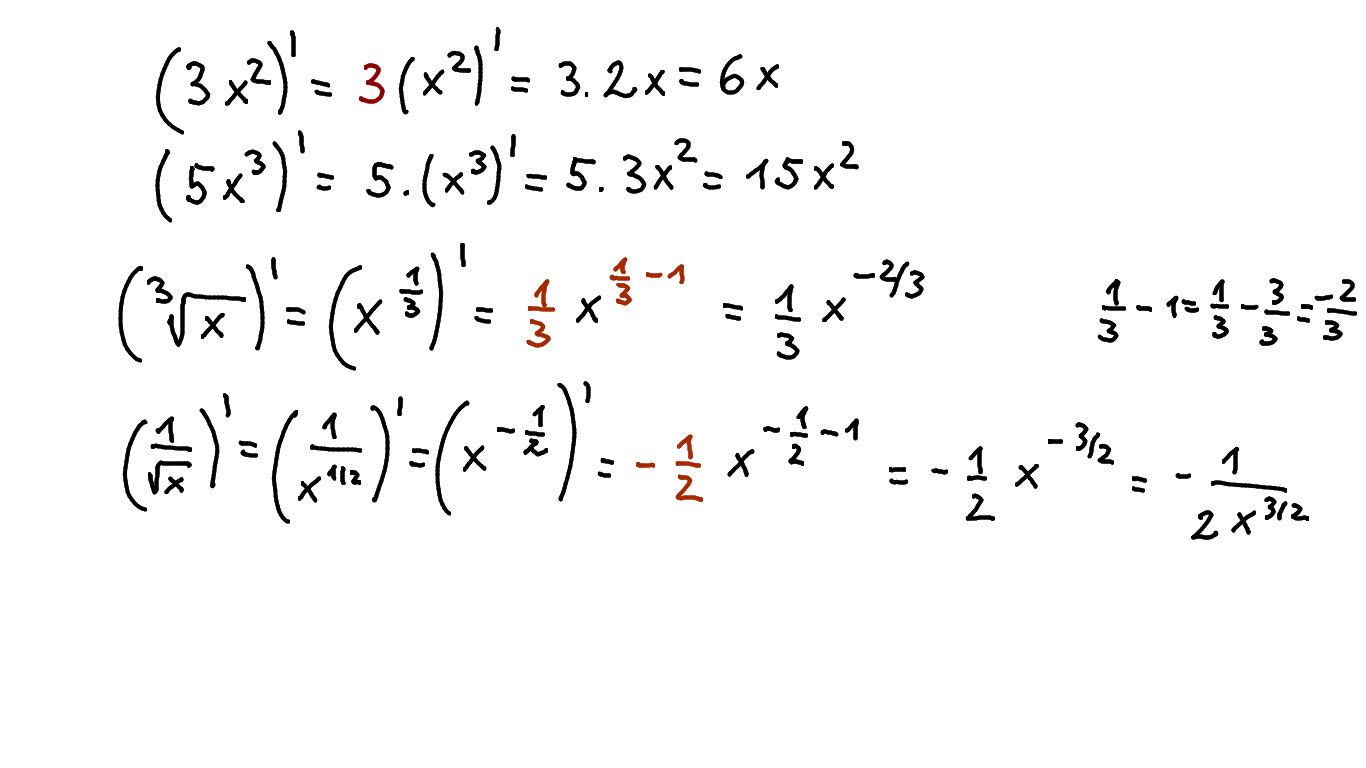 (3x²)' = 3(x²)' = 3.2x = 6x
(5x³)' = 5.(x³)' = 5.3x² = 15x²
(∛x)' = (x^{1/3})' = 1/3 x^{1/3 - 1} = 1/3 x^{-2/3} 1/3 - 1 = 1/3 - 3/3 = -2/3
(1/√x)' = (1/x^{1/2})' = (x^{-1/2})' = -1/2 x^{-1/2 - 1} = -1/2 x^{-3/2} = -1/(2x^{3/2})